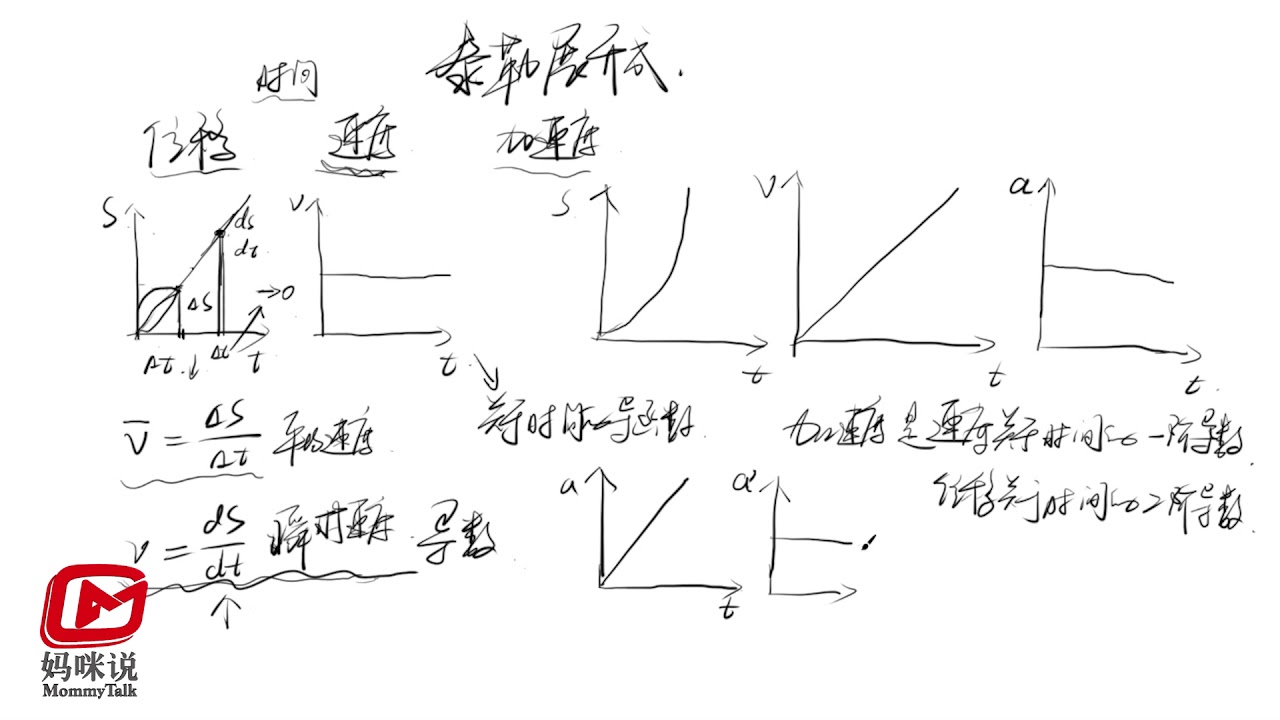 泰勒展开式.
时间
位移 速度 加速度
S ds dt ΔS →0 Δt Δt t
V t
S t
V t
a t.
V̄ = ΔS/Δt 平均速度
关于时间的导函数
加速度是速度关于时间的一阶导数.
位移关于时间的2阶导数.
v = ds/dt 瞬时速度. 导数
a t
a'
妈咪说
MommyTalk